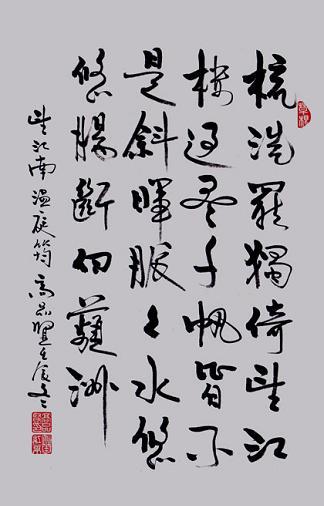 梳洗罷獨倚望江
樓過盡千帆皆不
是斜暉脈々水悠
悠腸斷白蘋洲
望江南 温庭筠 高品 壬辰冬